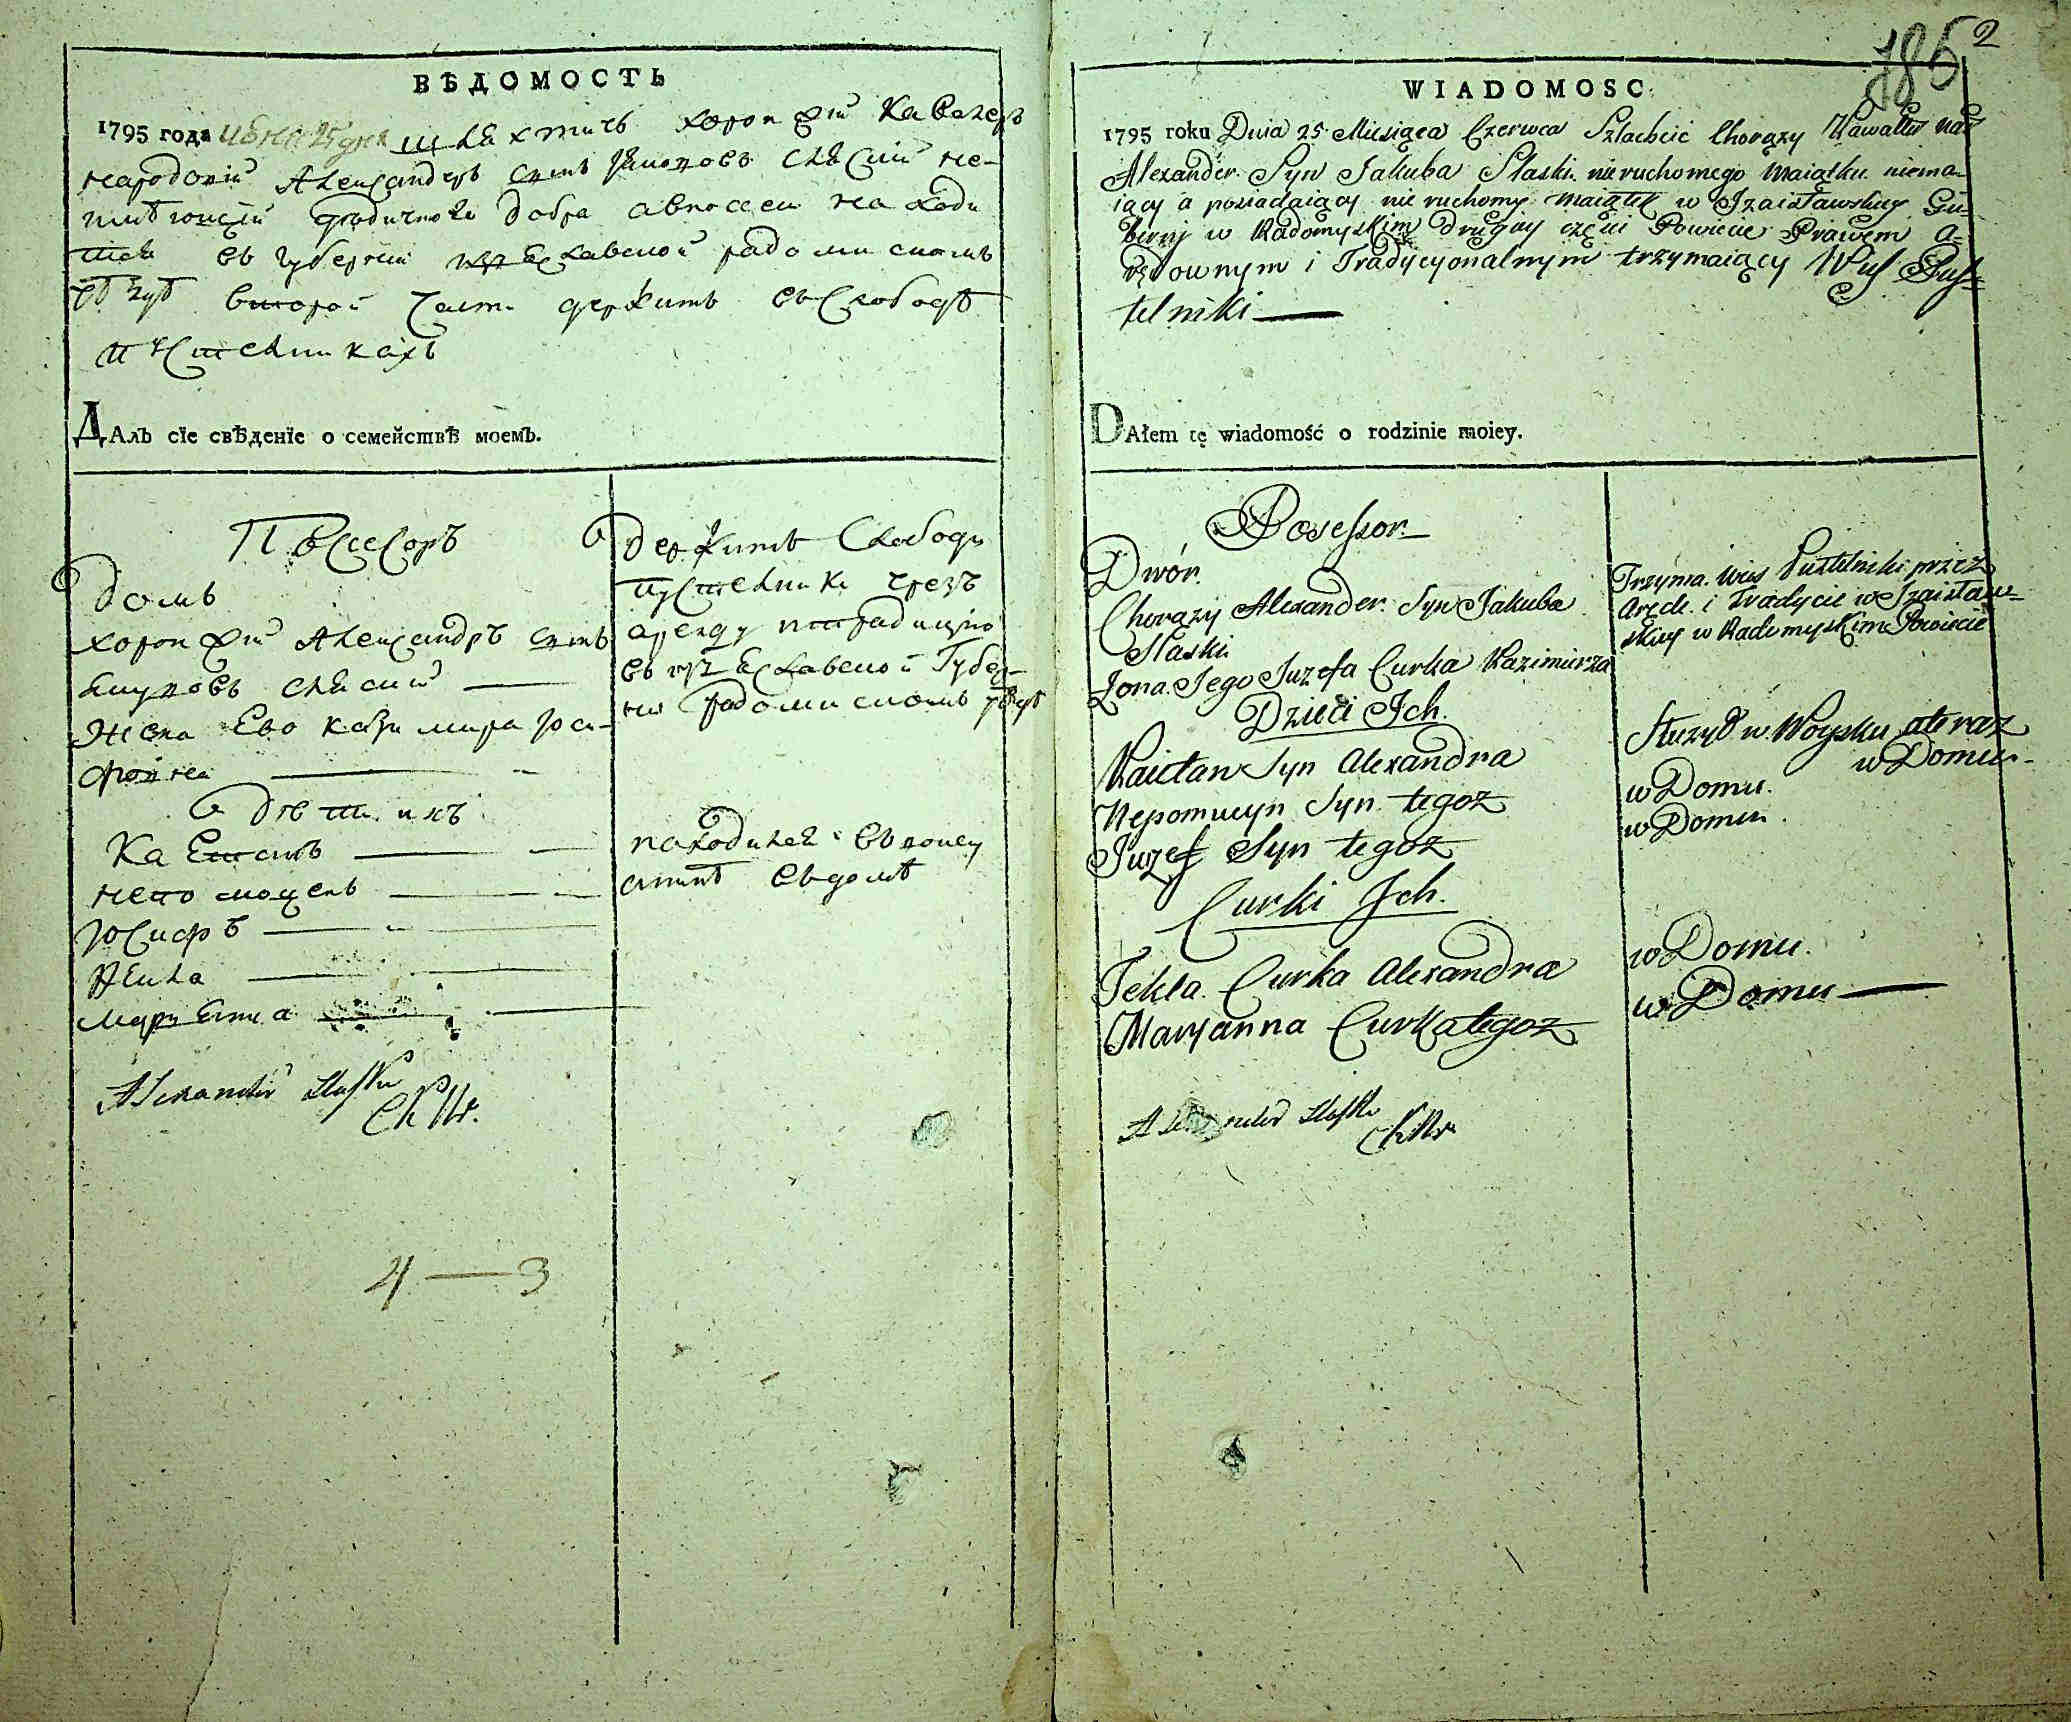 ВѢДОМОСТЬ
1795 года июня 25 дня шляхтичь хорончій Каваллеръ
народовій Александеръ сынъ Якуповъ сляскій не-
имѣющій добра
въ губерніи Изяславской радомискомъ
второй части держитъ въ Слободѣ
пустелникахъ
ДАлъ сїе свѣденїе о семействѣ моемъ.
Посесоръ
домъ
хоронжій Александръ сынъ
Якуповъ сляскій
Жена Ево казимира Юзе-
фойна
дѣти ихъ
Каетанъ
непомуценъ
Юсифъ
Текла
Мариенна
Alexander Slaski
Ch K N
держитъ Слободу
пустелники чрезъ
аренду традицію
въ Изяславской Губер-
ніи радомискомъ
находился въ
въ домѣ
4 — 3
186 2
WIADOMOSC
1795 roku Dnia 25 Miesiąca Czerwca Szlachcic Chorąży Kawaller nar
Alexander Syn Jakuba Slaski nieruchomego maiątku niema-
iący a posiadaiący nie ruchomy maiątek w Izaisławskiey Gu-
berny w Radomyskim Drugiey części Powiecie Prawem a-
rędownym i Tradycyonalnym trzymaiący Wieś Pus-
telniki
DAłem tę wiadomość o rodzinie moiey.
Posessor
Dwór.
Chorąży Alexander Syn Jakuba
Slaski
Zona Jego Juzefa Curka Kazimierza
Dzieci Ich
Kaietan Syn Alexandra
Nepomucyn Syn tegoż
Juzef Syn tegoż
Curki Ich.
Tekla Curka Alexandra
Maryanna Curka tegoż
Alexander Slaski
Ch K N
Trzyma Wieś Pustelniki przez
Arędę i Tradycie w Izaisław-
skiey w Radomyskim Powiecie
Służył w Woysku a teraz
w Domu
w Domu.
w Domu.
w Domu.
w Domu